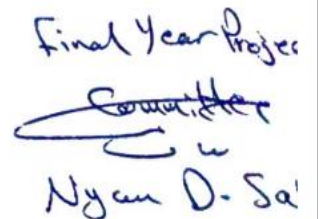 Final Year Projec
Committee
Nyan D. Sa